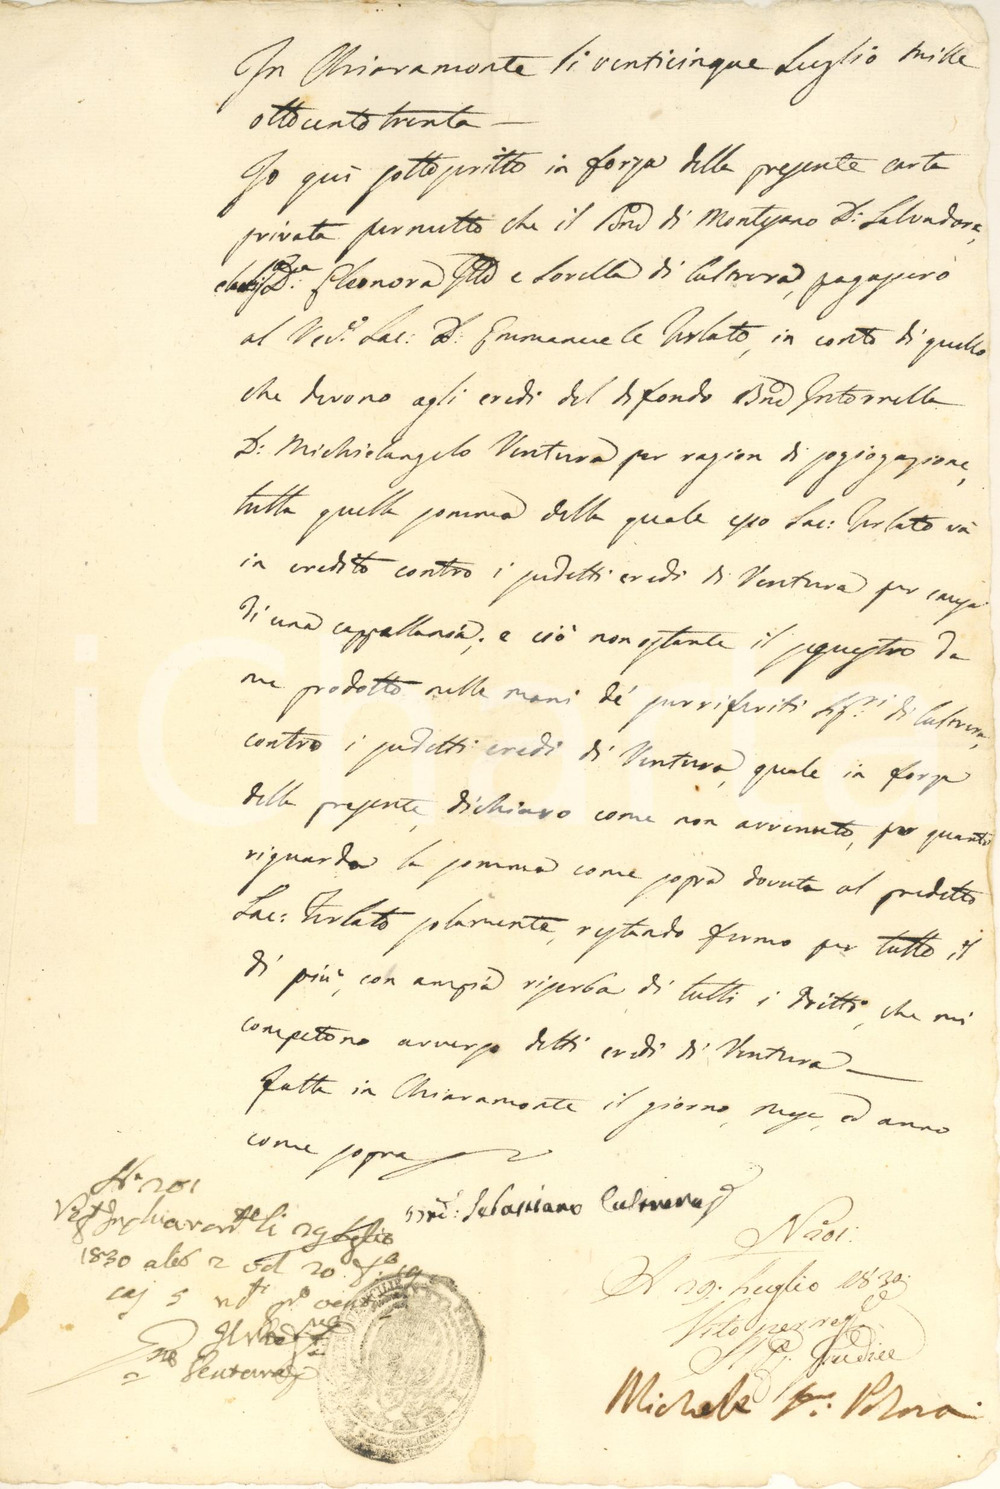 In Chiaramonte li venticinque Luglio mille
ottocento trenta —
Io quì sottoscritto in forza della presente carta
privata permetto che il Bne di Montesano D: Salvadore,
Da Eleonora e Sorella di Cultrera, pagassero
al Sac: D: Emmanuele Terlato, in conto di quello
che devono agli eredi del difondo Bne Intornella
D: Michielangelo Ventura per ragion di sogiogazione,
tutta quella somma della quale esso Sac: Terlato và
in credito contro i sudetti eredi di Ventura per causa
di una cappellania; e ciò nonostante il sequestro da
me prodotto nelle mani dé surriferiti di Cultrera,
contro i sudetti eredi di Ventura, quale in forza
della presente, dichiaro come non avvenuto, per quanto
riguarda la somma come sopra dovuta al predetto
Sac: Terlato solamente, restando fermo per tutto il
di più, con ampia riserba di tutti i dritti, che mi
competono avverso detti eredi di Ventura —
Fatta in Chiaramonte il giorno, mese, ed anno
come sopra
Sebastiano Cultrera
No 201
li 29 Luglio
1830 2 20
5
Ventura
N 201:
A 29: Luglio 1830:
Visto per
Il Giudice
Michele